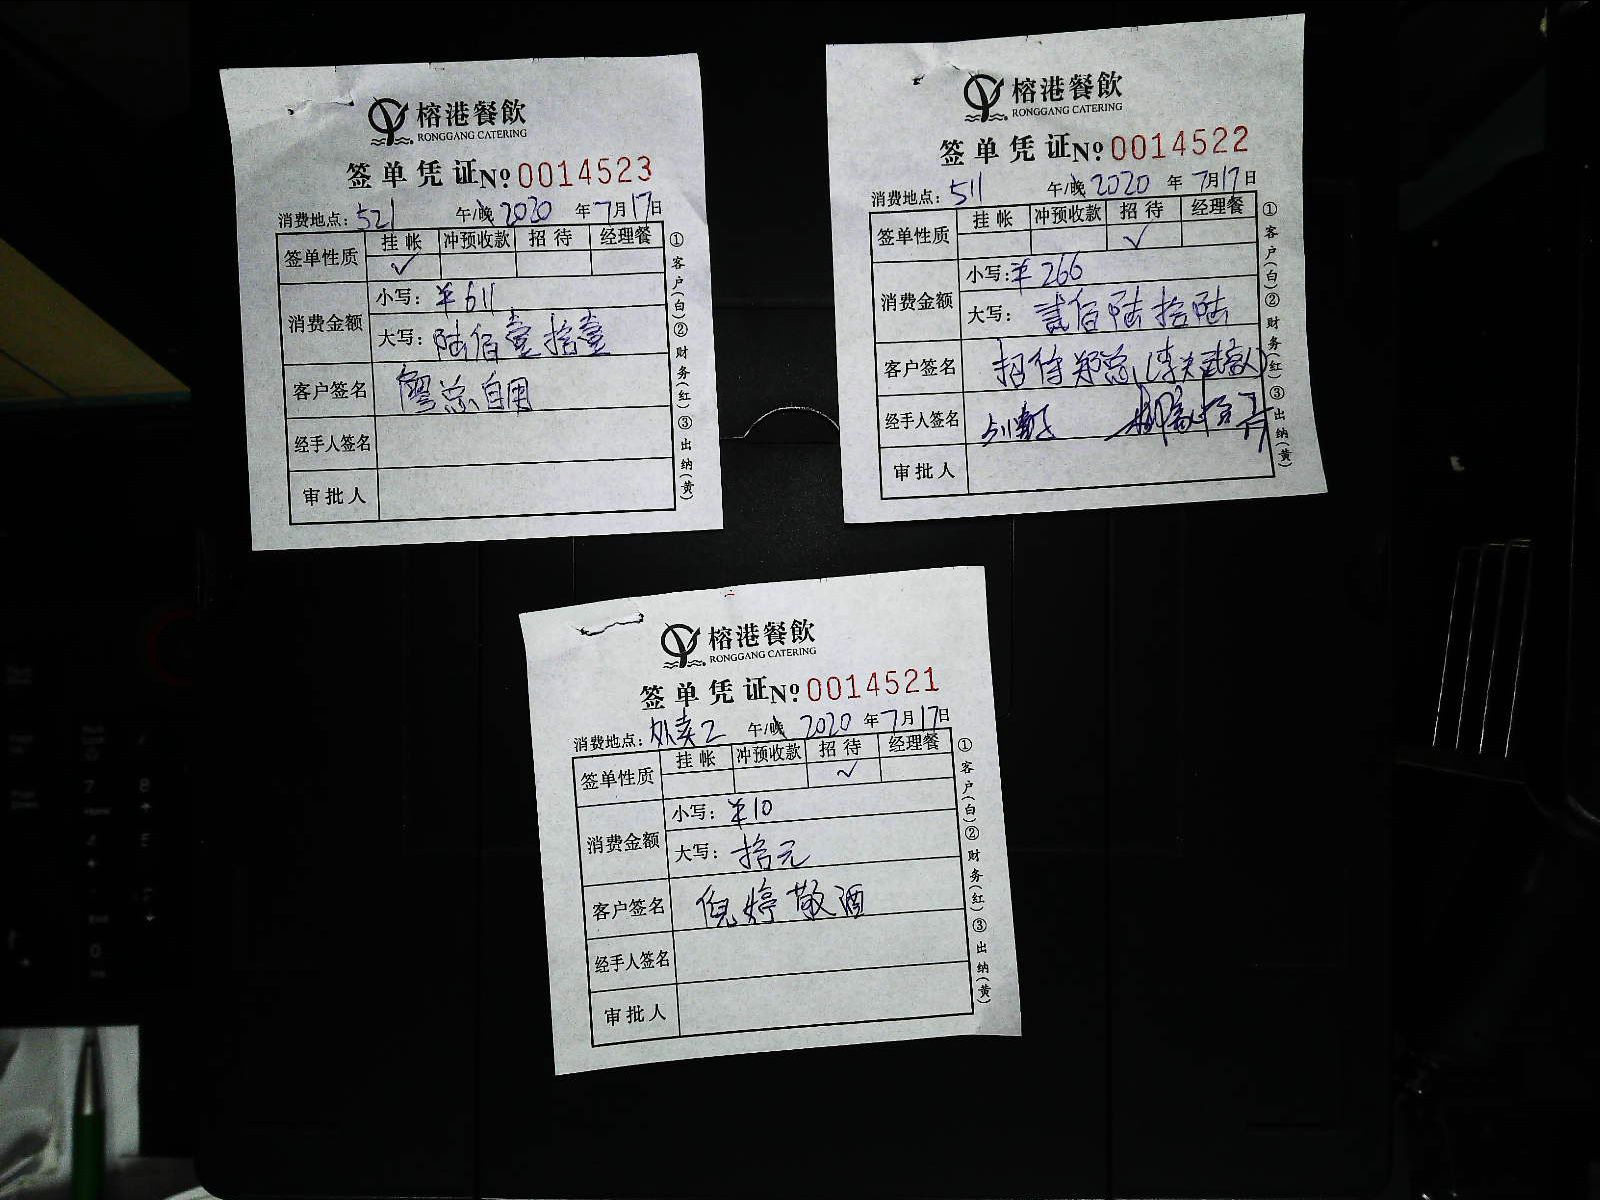 榕港餐飲
RONGGANG CATERING
签单凭证 №0014523
消费地点：521 午/晚 2020年7月17日
签单性质 挂帐 冲预收款 招待 经理餐
✓
消费金额 小写：¥611
大写：陆佰壹拾壹
客户签名 总自用
经手人签名
审批人
①客户(白)②财务(红)③出纳(黄)
榕港餐飲
RONGGANG CATERING
签单凭证 №0014522
消费地点：511 午/晚 2020年7月17日
签单性质 挂帐 冲预收款 招待 经理餐
✓
消费金额 小写：¥266
大写：贰佰陆拾陆
客户签名 招待郑总
经手人签名
审批人
①客户(白)②财务(红)③出纳(黄)
榕港餐飲
RONGGANG CATERING
签单凭证 №0014521
消费地点：外卖2 午/晚 2020年7月17日
签单性质 挂帐 冲预收款 招待 经理餐
✓
消费金额 小写：¥10
大写：拾元
客户签名 倪婷敬酒
经手人签名
审批人
①客户(白)②财务(红)③出纳(黄)